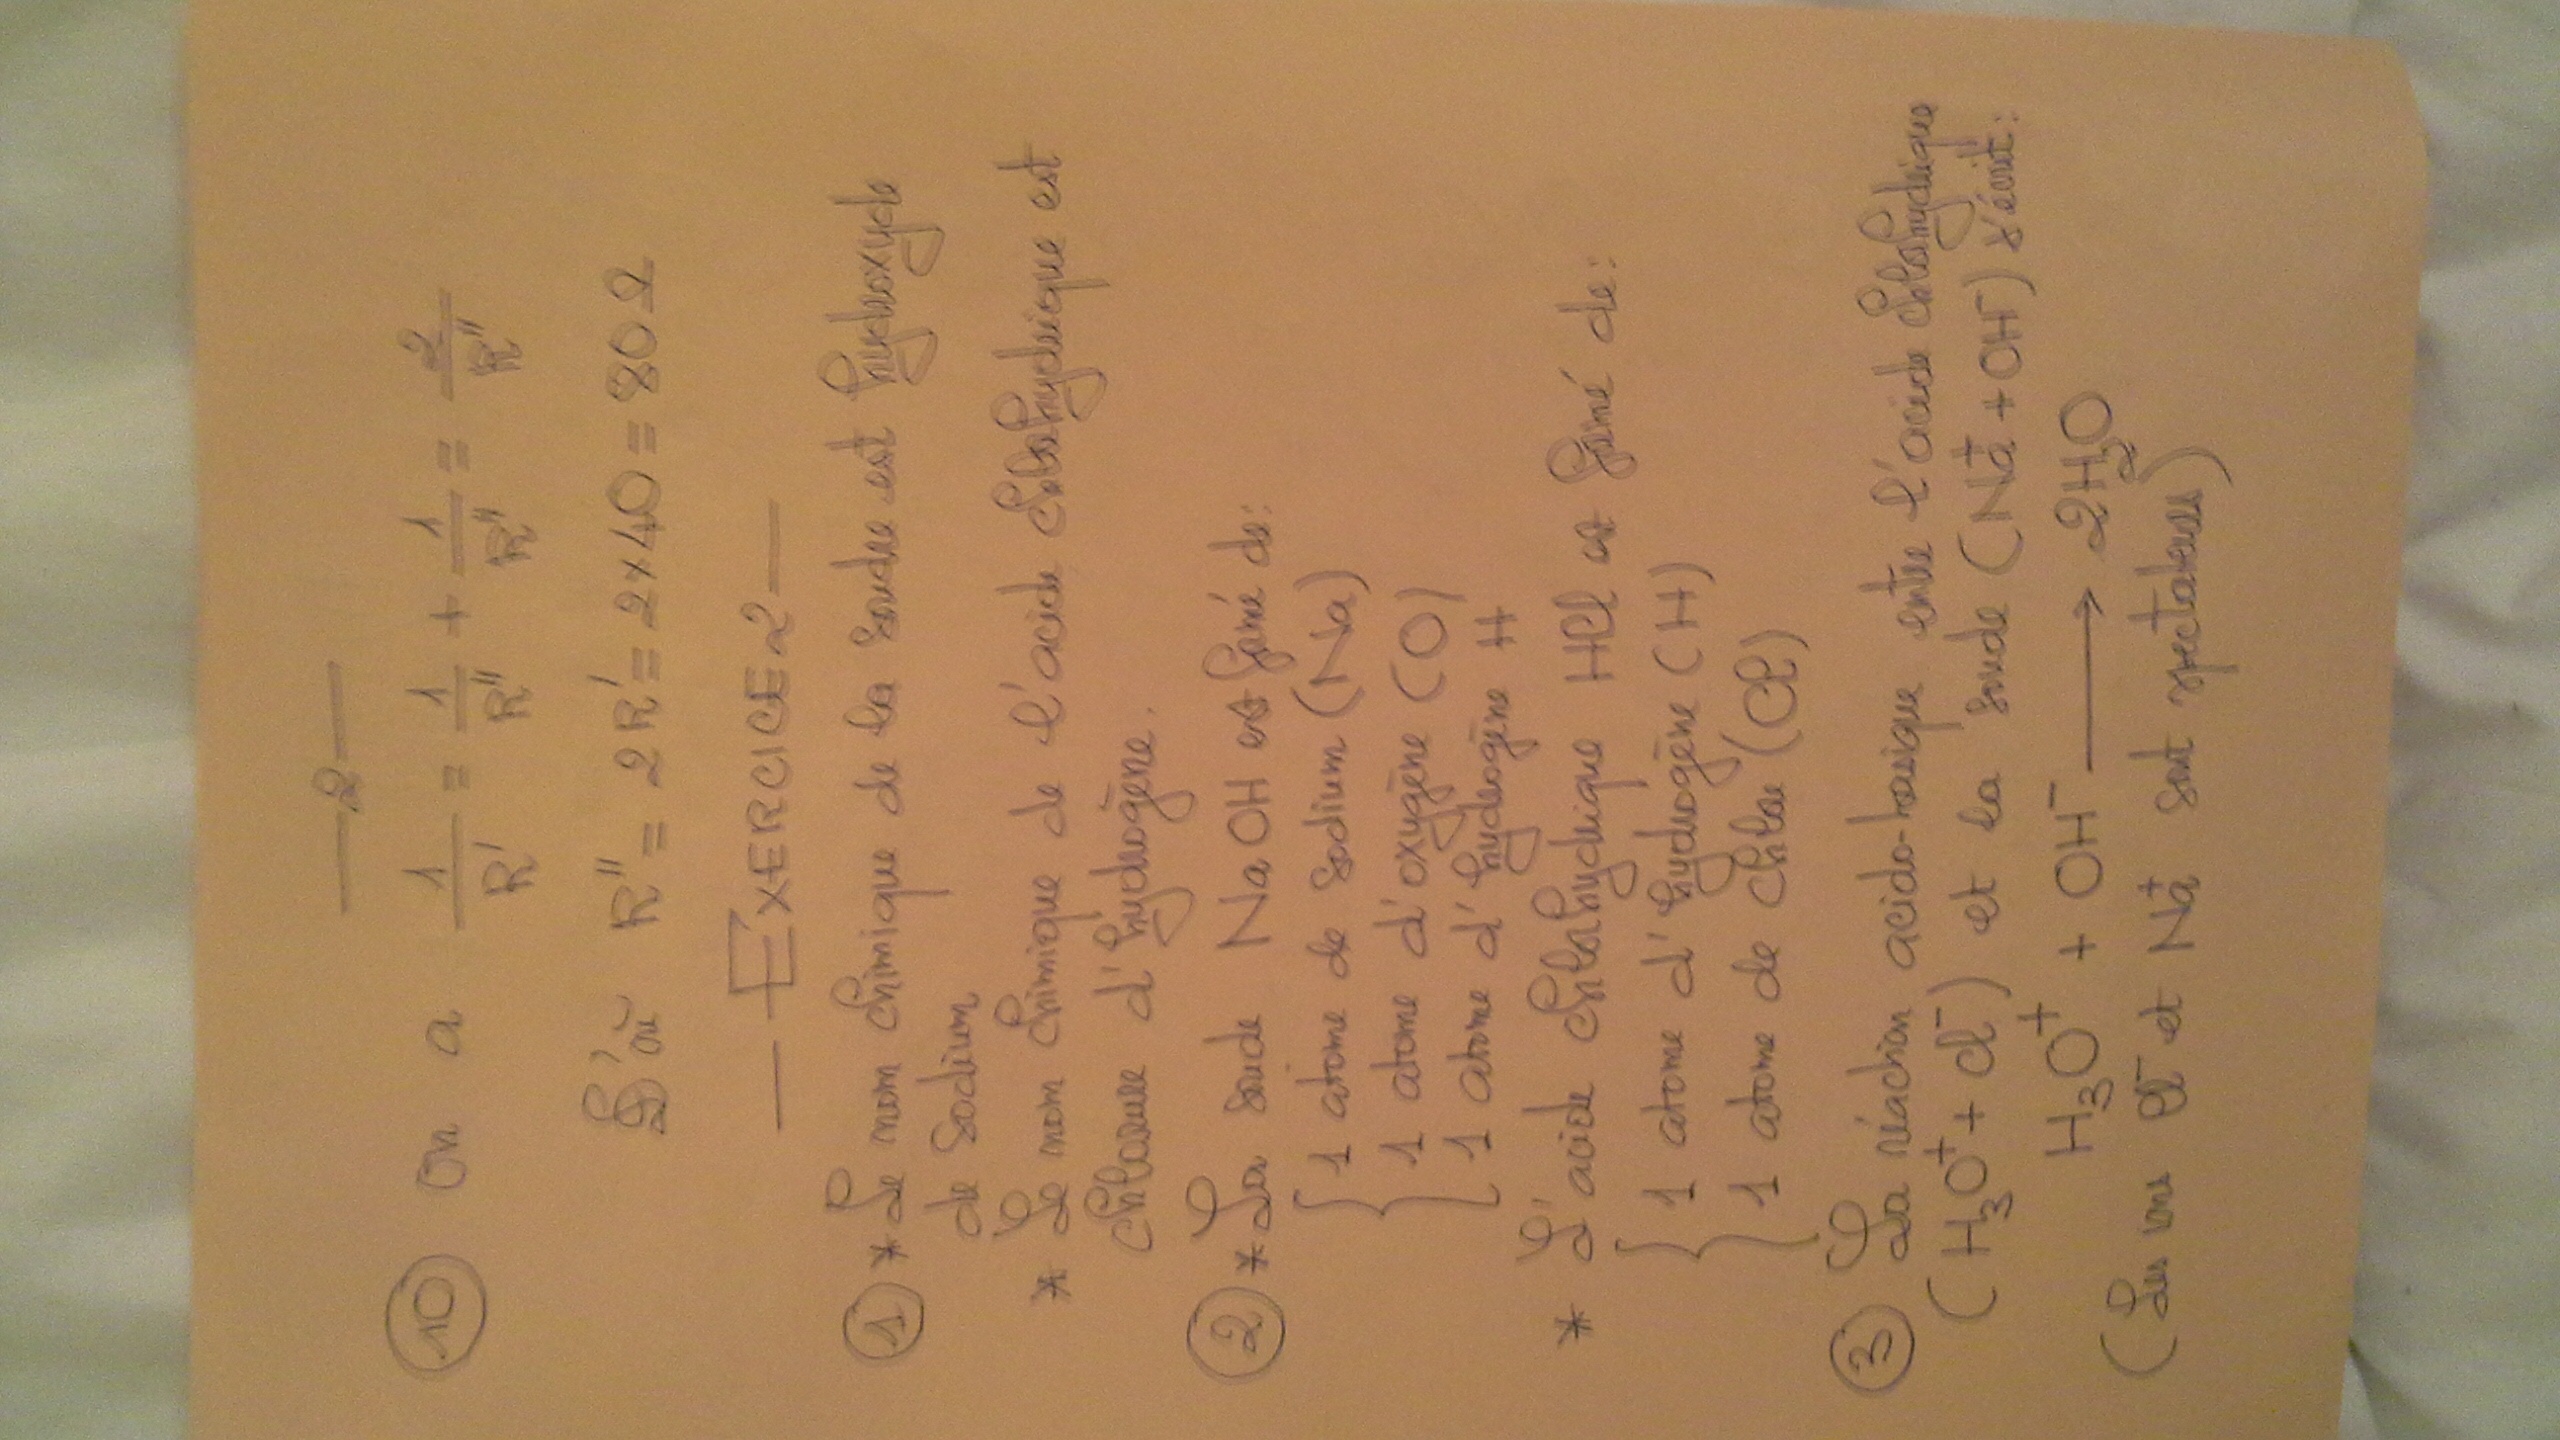 —2—
⑩ on a 1/R' = 1/R'' + 1/R'' = 2/R''
D'où R'' = 2R' = 2×40 = 80Ω
— EXERCICE 2 —
① * Le nom chimique de la soude est hydroxyde
de sodium
* Le nom chimique de l'acide chlorhydrique est
chlorure d'hydrogène.
② * La soude NaOH est formé de:
{ 1 atome de sodium (Na)
1 atome d'oxygène (O)
1 atome d'hydrogène H
* L'acide chlorhydrique HCl est formé de:
{ 1 atome d'hydrogène (H)
1 atome de chlore (Cl)
③ La réaction acido-basique entre l'acide chlorhydrique
(H₃O⁺ + Cl⁻) et la soude (Na⁺ + OH⁻) s'écrit:
H₃O⁺ + OH⁻ → 2H₂O
(Les ions Cl⁻ et Na⁺ sont spectateurs)